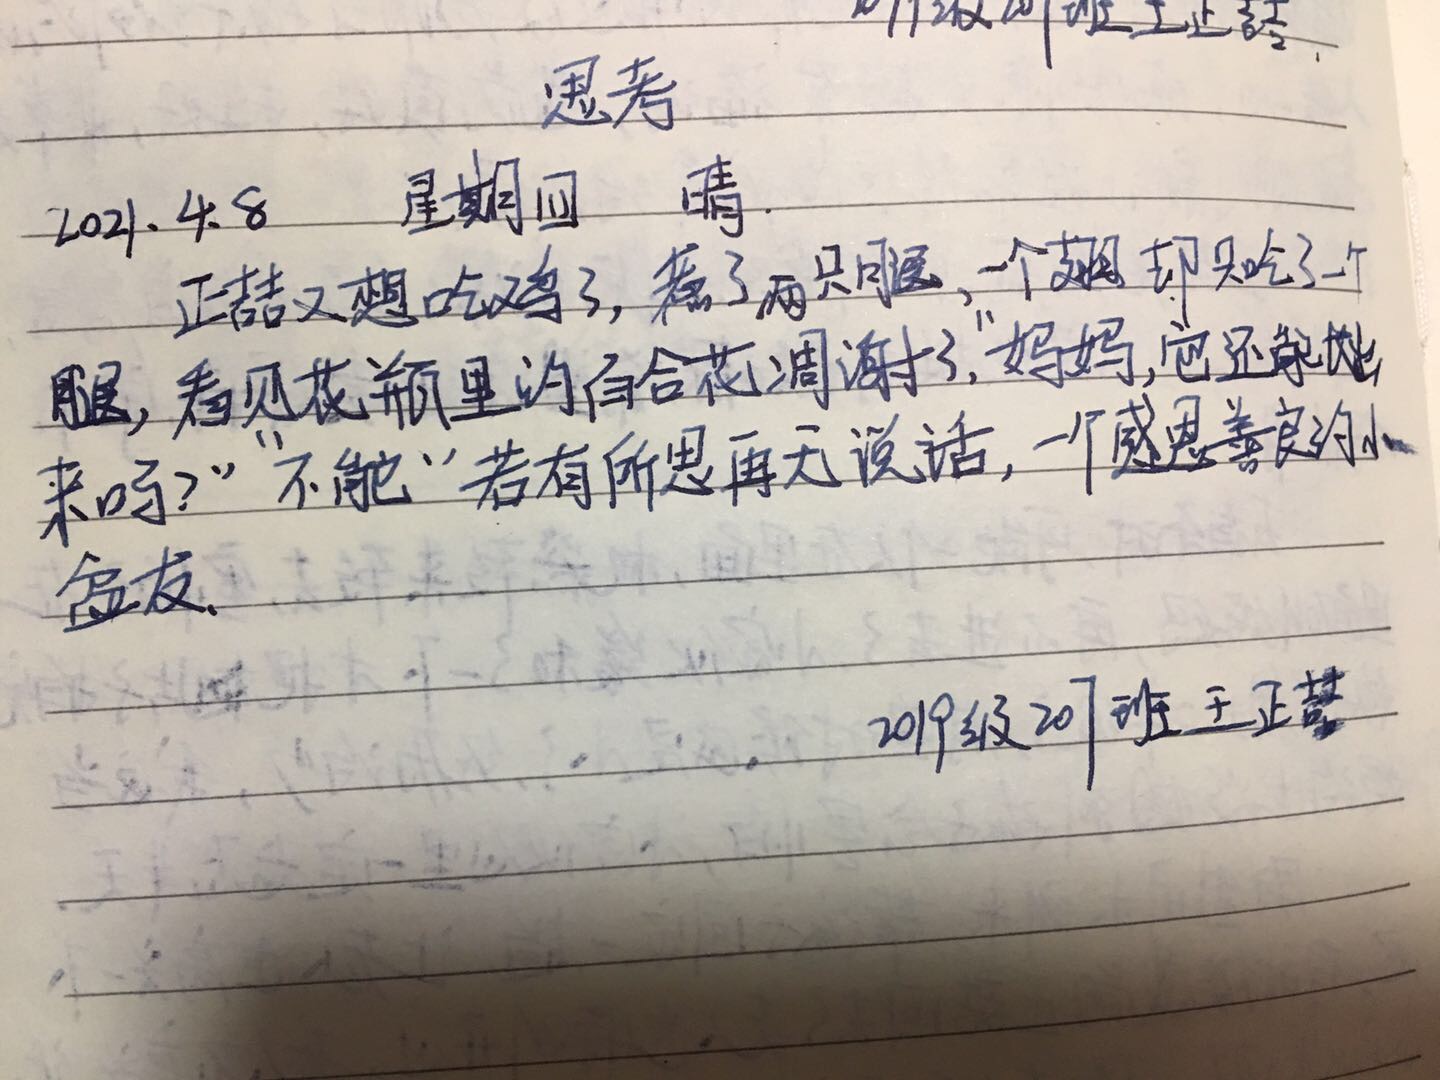 2019级207班王正喆
思考
2021.4.8 星期四 晴.
正喆又想吃鸡了,煮了两只腿,一个翅却只吃了一个
腿,看见花瓶里的百合花凋谢了,"妈妈,它还能
来吗?""不能"若有所思再无说话,一个感恩善良的小
盆友.
2019级207班王正喆